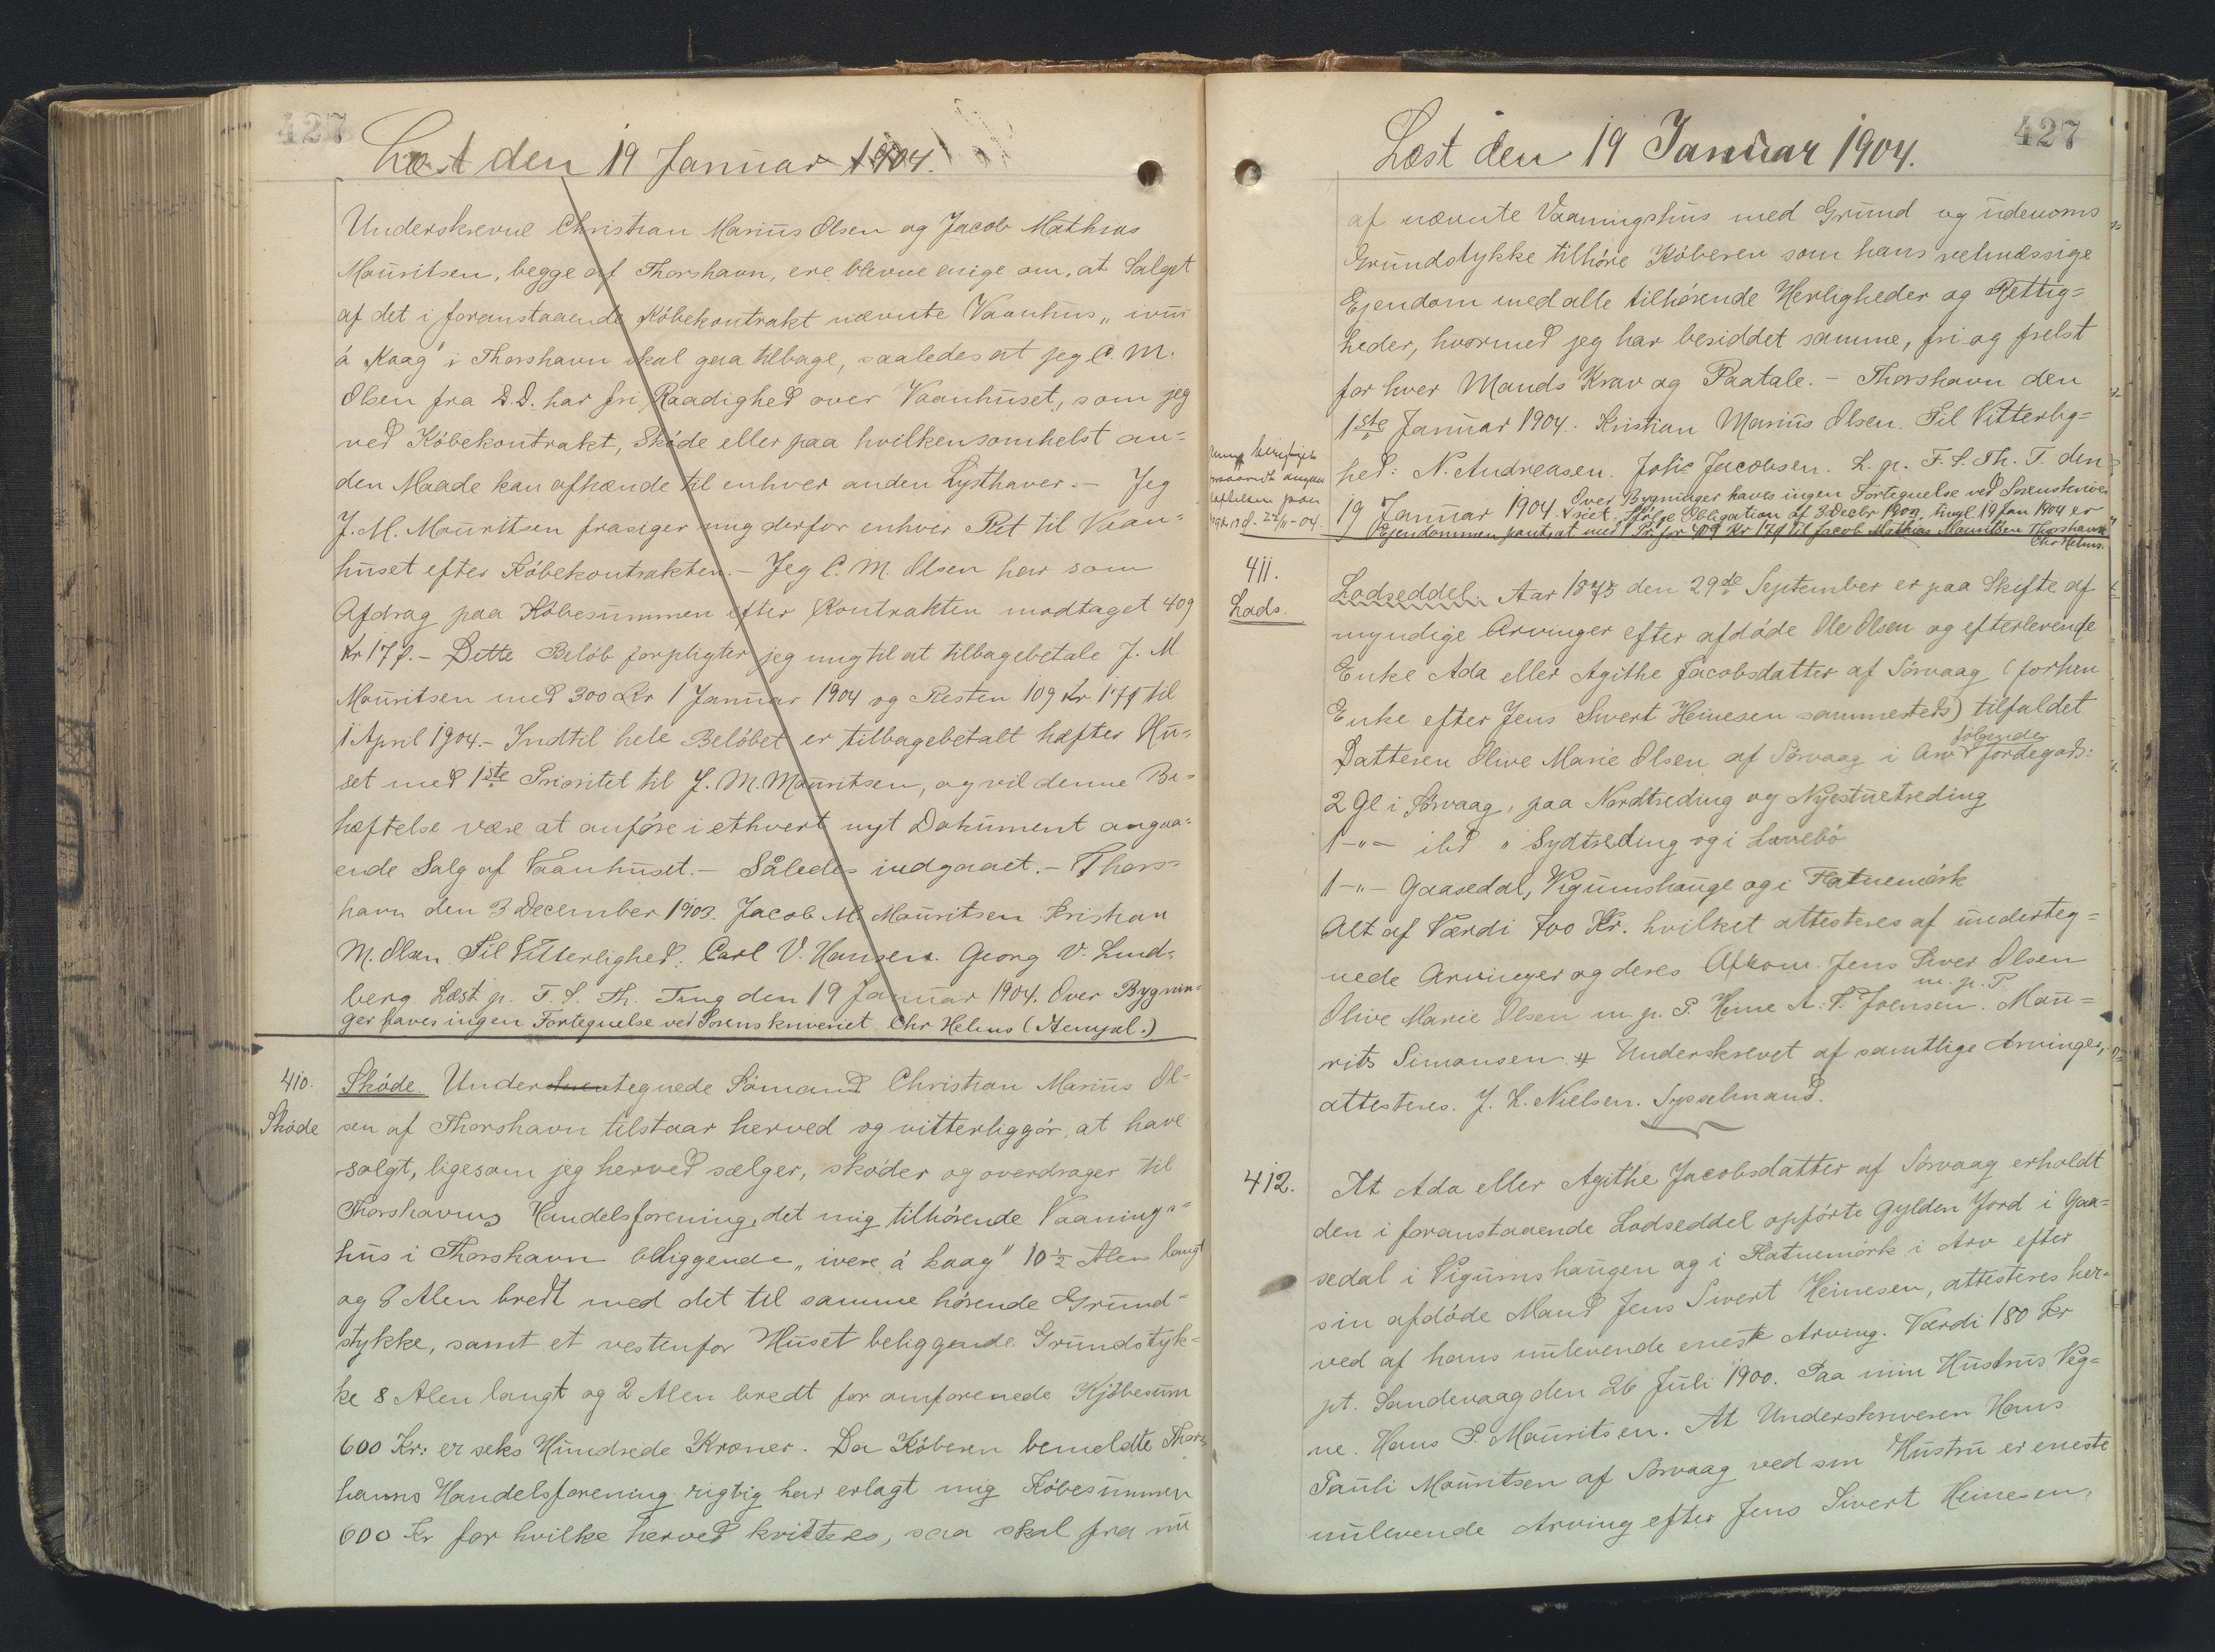 427
Læst den 19 Januar 1904.
Underskrevne Christian Marius Olsen og Jacob Mathias
Mouritsen, begge af Thorshavn, ere blevne enige om, at Salget
af det i foranstaaende Købekontrakt nævnte Vaanhus "ivui
á Kaag" i Thorshavn skal gaa tilbage, saaledes at jeg C. M.
Olsen fra D.D. har fri Raadighed over Vaanhuset, som jeg
ved Købekontrakt, Skøde eller paa hvilkensomhelst an=
den Maade kan afhænde til enhver anden Lysthaver. - Jeg
J. M. Mouritsen frasiger mig derfor enhver Ret til Vaan=
huset efter Købekontrakten. - Jeg C. M. Olsen har som
Afdrag paa Købesummen efter Kontrakten modtaget 409
Kr 17 Ø. - Dette Beløb forpligter jeg mig til at tilbagebetale J. M
Mouritsen med 300 Kr 1 Januar 1904 og Resten 109 Kr 17 Ø til
1 April 1904. - Indtil hele Beløbet er tilbagebetalt hæfter Hu=
set med 1ste Prioritet til J. M. Mouritsen, og vil denne Be=
hæftelse være at anføre i ethvert nyt Dokument angaa=
ende Salg af Vaanhuset. - Således indgaaet. - Thors=
havn den 3 December 1903. Jacob M. Mouritsen Kristian
M. Olsen. Til Vitterlighed: Carl V. Hansen. Georg V. Lind=
berg. Læst p. F. S. Th. Ting den 19 Januar 1904. Over Bygnin=
ger haves ingen Fortegnelse ved Sorenskriveriet Chr Helms (Stempel.)
410.
Skøde
Skøde. Undertegnede Sömand Christian Marius Ol=
sen af Thorshavn tilstaar herved og vitterliggör, at have
solgt, ligesom jeg herved sælger, skøder og overdrager til
Thorshavns Handelsforening, det mig tilhørende Vaanings=
hus i Thorshavn beliggende "ivere á kaag" 10 1/2 Alen langt
og 8 Alen bredt med det til samme hørende Grund=
stykke, samt et vestenfor Huset beliggende Grundstyk=
ke 8 Alen langt og 2 Alen bredt for omforenede Kjöbesum
600 Kr: er seks Hundrede Kroner. Da Köberen bemeldte Thors=
havns Handelsforening rigtig har erlagt mig Købesummen
600 Kr for hvilke herved kvitteres, saa skal fra nu
427
Læst den 19 Januar 1904.
af nævnte Vaaningshus med Grund og udenoms
Grundstykke tilhøre Köberen som hans retmæssige
Ejendom med alle tilhørende Herligheder og Rettig=
heder, hvormed jeg har besiddet samme, fri og frelst
for hver Mands Krav og Paatale. - Thorshavn den
1ste Januar 1904. Kristian Marius Olsen. Til Vitterlig=
hed: N. Andreasen. Johs Jacobsen. L. p. F. S. Th. T. den
19 Januar 1904. Over Bygninger haves ingen Fortegnelse ved Sorenskrive=
riet. Ifølge Obligation af 3 Decbr 1903, tingl. 19 Jan 1904 er
Ejendommen pantsat med 1 Pr. for 409 Kr 17 Ø til Jacob Mathias Mouritsen Thorshavn
Chr Helms.
411.
Lods.
Lodseddel. Aar 1875 den 29de September er paa Skifte af
myndige Arvinger efter afdøde Ole Olsen og efterlevende
Enke Ada eller Agithe Jacobsdatter af Sørvaag (forhen
Enke efter Jens Sivert Heinesen sammesteds) tilfaldet
Datteren Olive Marie Olsen af Sørvaag i Arv følgende Jordegods:
2 Gl i Sørvaag, paa Nordtreding og Nyestuetreding
1 -"- ibd " Sydtreding og i Lonebø
1 -"- Gaasedal, Vigumshauge og i Flatnemørk
Alt af Værdi 700 Kr. hvilket attesteres af underteg=
nede Arvinger og deres Afkom. Jens Siver Olsen
m. p. P.
Olive Marie Olsen m. p. P. Heine A. S. Joensen. Mau=
rits Simonsen. Underskrevet af samtlige Arvinger,
attesteres. J. K. Nielsen. Sysselmand.
412.
At Ada eller Agithe Jacobsdatter af Sørvaag erholdt
den i foranstaaende Lodseddel opførte Gylden Jord i Gaa=
sedal i Vigumshaugen og i Flatnemørk i Arv efter
sin afdøde Mand Jens Sivert Heinesen, attesteres her=
ved af hans nulevende eneste Arving. Værdi 180 Kr
pt. Sandevaag den 26 Juli 1900. Paa min Hustrus Veg=
ne. Hans P. Mouritsen. At Underskriveren Hans
Pauli Mouritsen af Sørvaag ved sin Hustru er eneste
nulevende Arving efter Jens Sivert Heinesen,